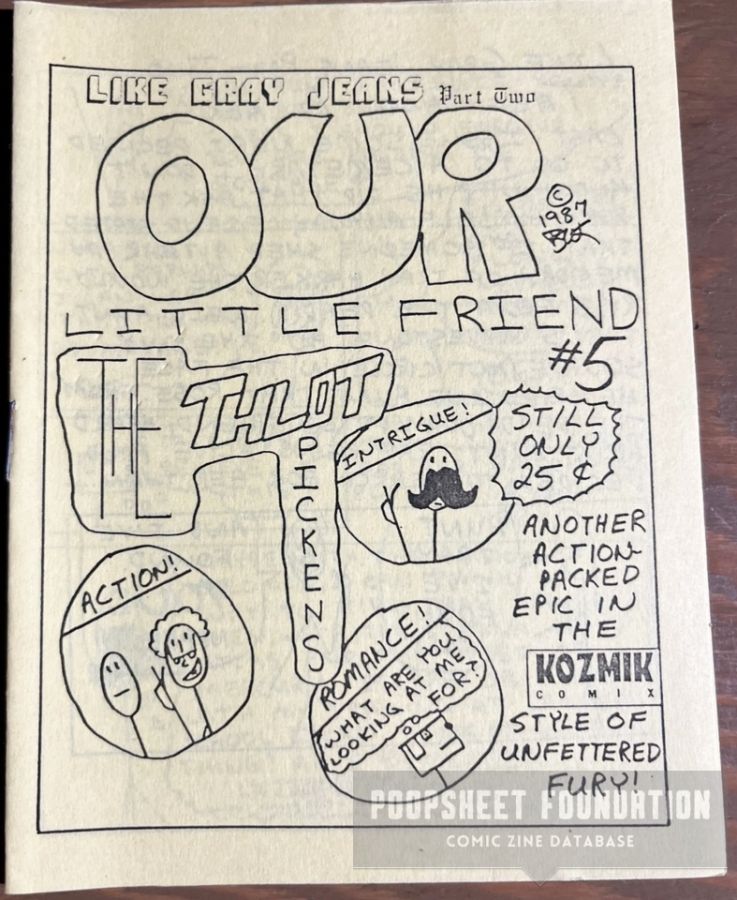 LIKE GRAY JEANS Part Two
OUR
© 1987
LITTLE FRIEND
#5
THLOT
PICKENS
INTRIGUE!
STILL
ONLY
25¢
ACTION!
ANOTHER
ACTION-
PACKED
EPIC IN
THE
KOZMIK
COMIX
STYLE OF
UNFETTERED
FURY!
ROMANCE!
WHAT ARE YOU
LOOKING AT ME
FOR?
POOPSHEET FOUNDATION
COMIC ZINE DATABASE